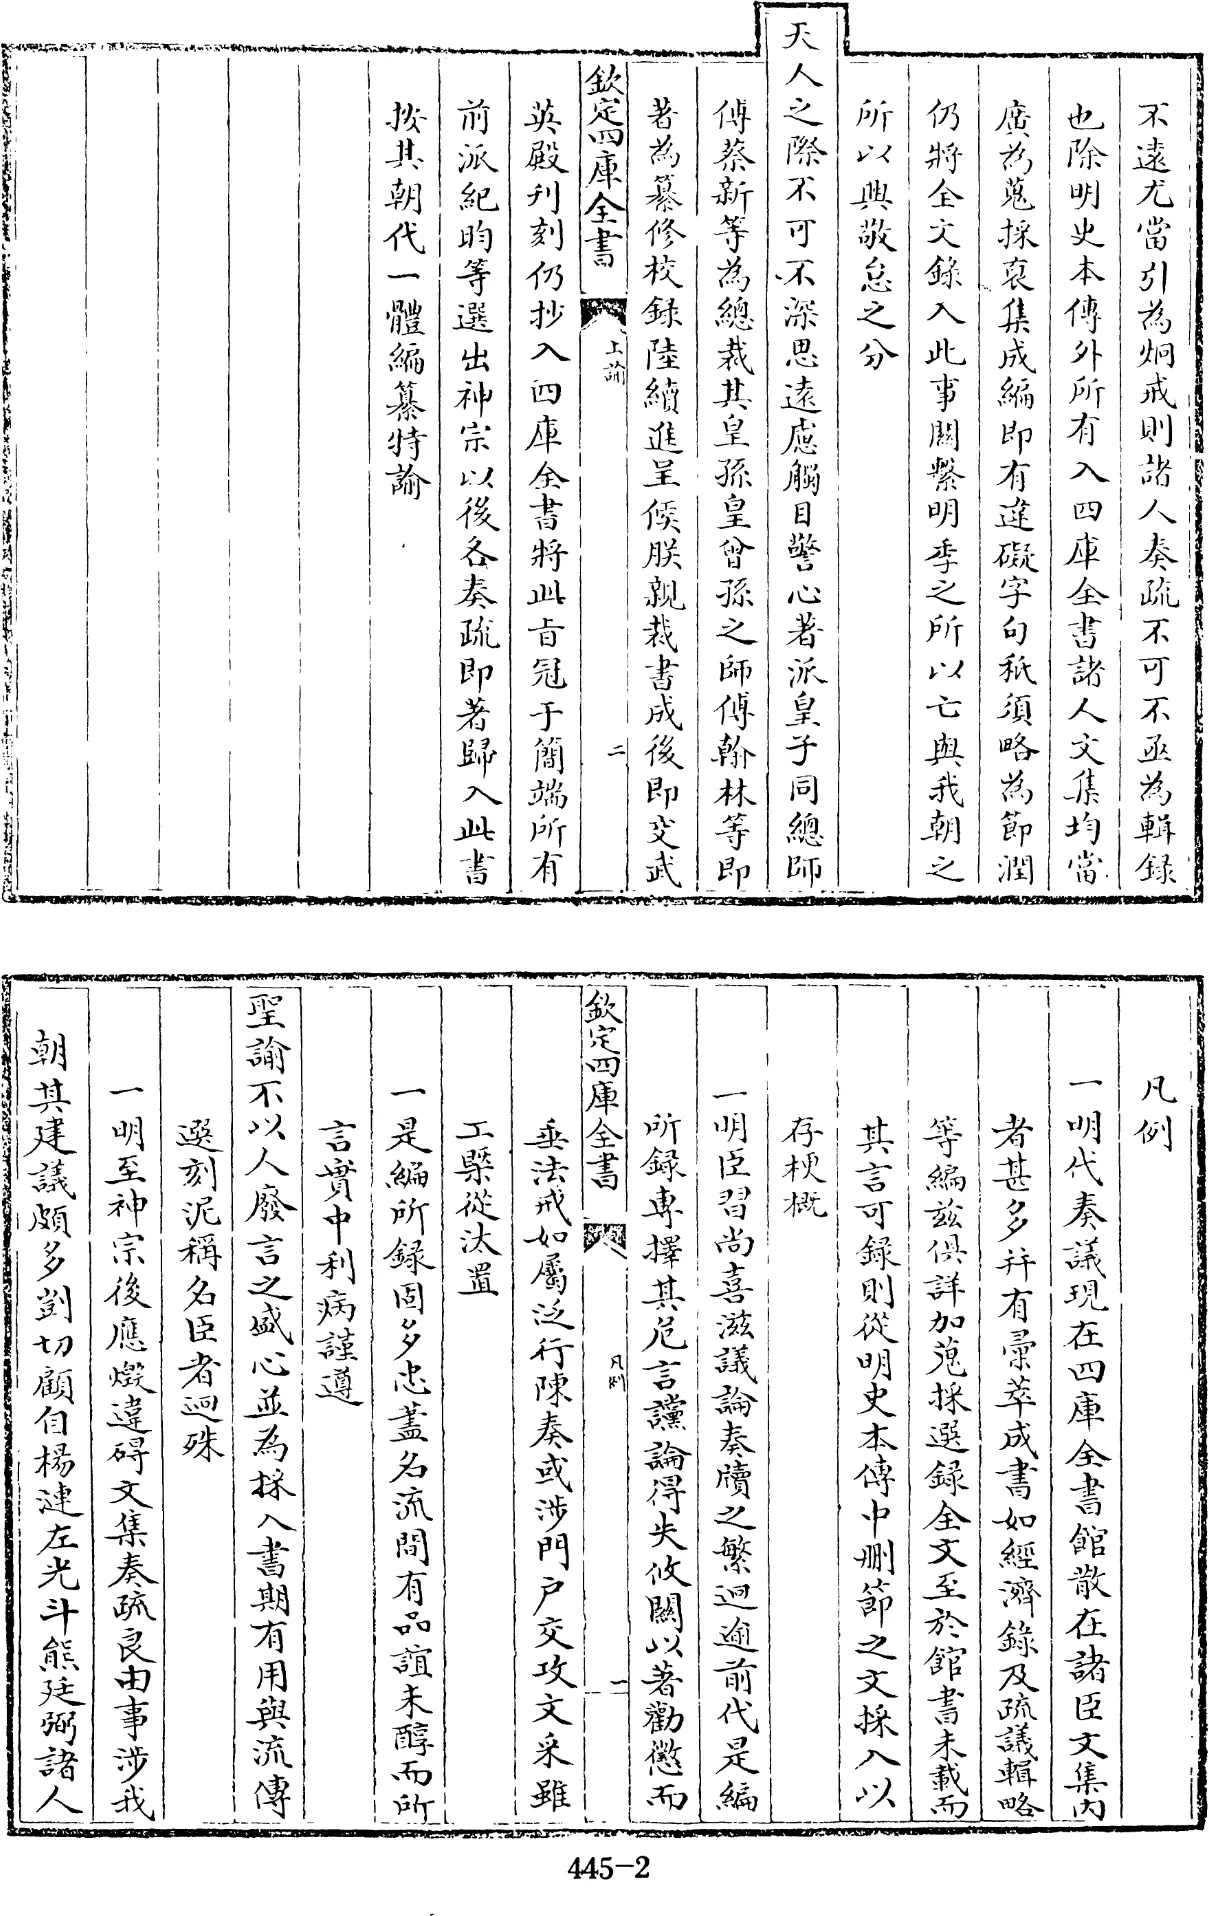 不遠尤當引為炯戒則諸人奏疏不可不亟為輯録
也除明史本傳外所有入四庫全書諸人文集均當
廣為蒐採裒集成編即有違礙字句秖須略為節潤
仍將全文錄入此事關繫明季之所以亡與我朝之
所以興敬怠之分
天人之際不可不深思遠慮觸目警心著派皇子同總師
傅蔡新等為總裁其皇孫皇曾孫之師傅翰林等即
著為纂修校録陸續進呈候朕親裁書成後即交武
欽定四庫全書
上諭
二
英殿刋刻仍抄入四庫全書將此旨冠于簡端所有
前派紀昀等選出神宗以後各奏疏即著歸入此書
按其朝代一體編纂特諭
凡例
一明代奏議現在四庫全書館散在諸臣文集内
者甚多并有彚萃成書如經濟錄及疏議輯略
等編兹俱詳加蒐採選録全文至於館書未載而
其言可録則從明史本傳中刪節之文採入以
存梗概
一明臣習尚喜滋議論奏牘之繁迥逾前代是編
所録專擇其危言讜論得失攸關以著勸懲而
欽定四庫全書
凡例
一
垂法戒如屬泛行陳奏或涉門户交攻文采雖
工槩從汰置
一是編所録固多忠藎名流間有品誼未醇而所
言實中利病謹遵
聖諭不以人廢言之盛心並為採入書期有用與流傳
選刻泥稱名臣者迥殊
一明至神宗後應燬違碍文集奏疏良由事涉我
朝其建議頗多剴切顧自楊漣左光斗熊廷弼諸人
445-2